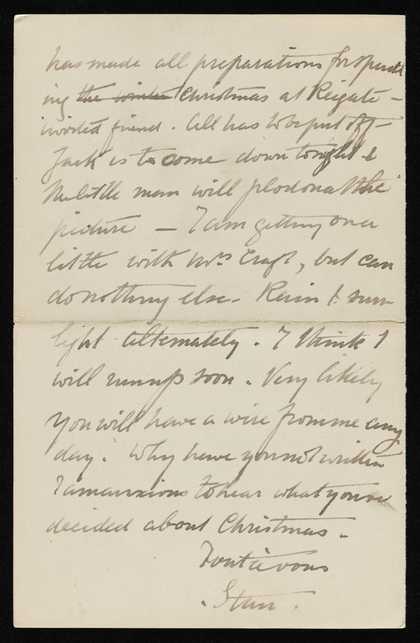 has made all preparations for spend
ing the winter Christmas at Reigate –
invited friend. All has to be put off –
Jack is to come down tonight &
the little man will plod on at the
picture – I am getting on a
little with Mrs Crafs, but can
do nothing else. Rain & sun-
light alternately. I think I
will run up soon. Very likely
you will have a wire from me any
day. Why have you not written
I am anxious to hear what you've
decided about Christmas.
Tout à vous
Starr.